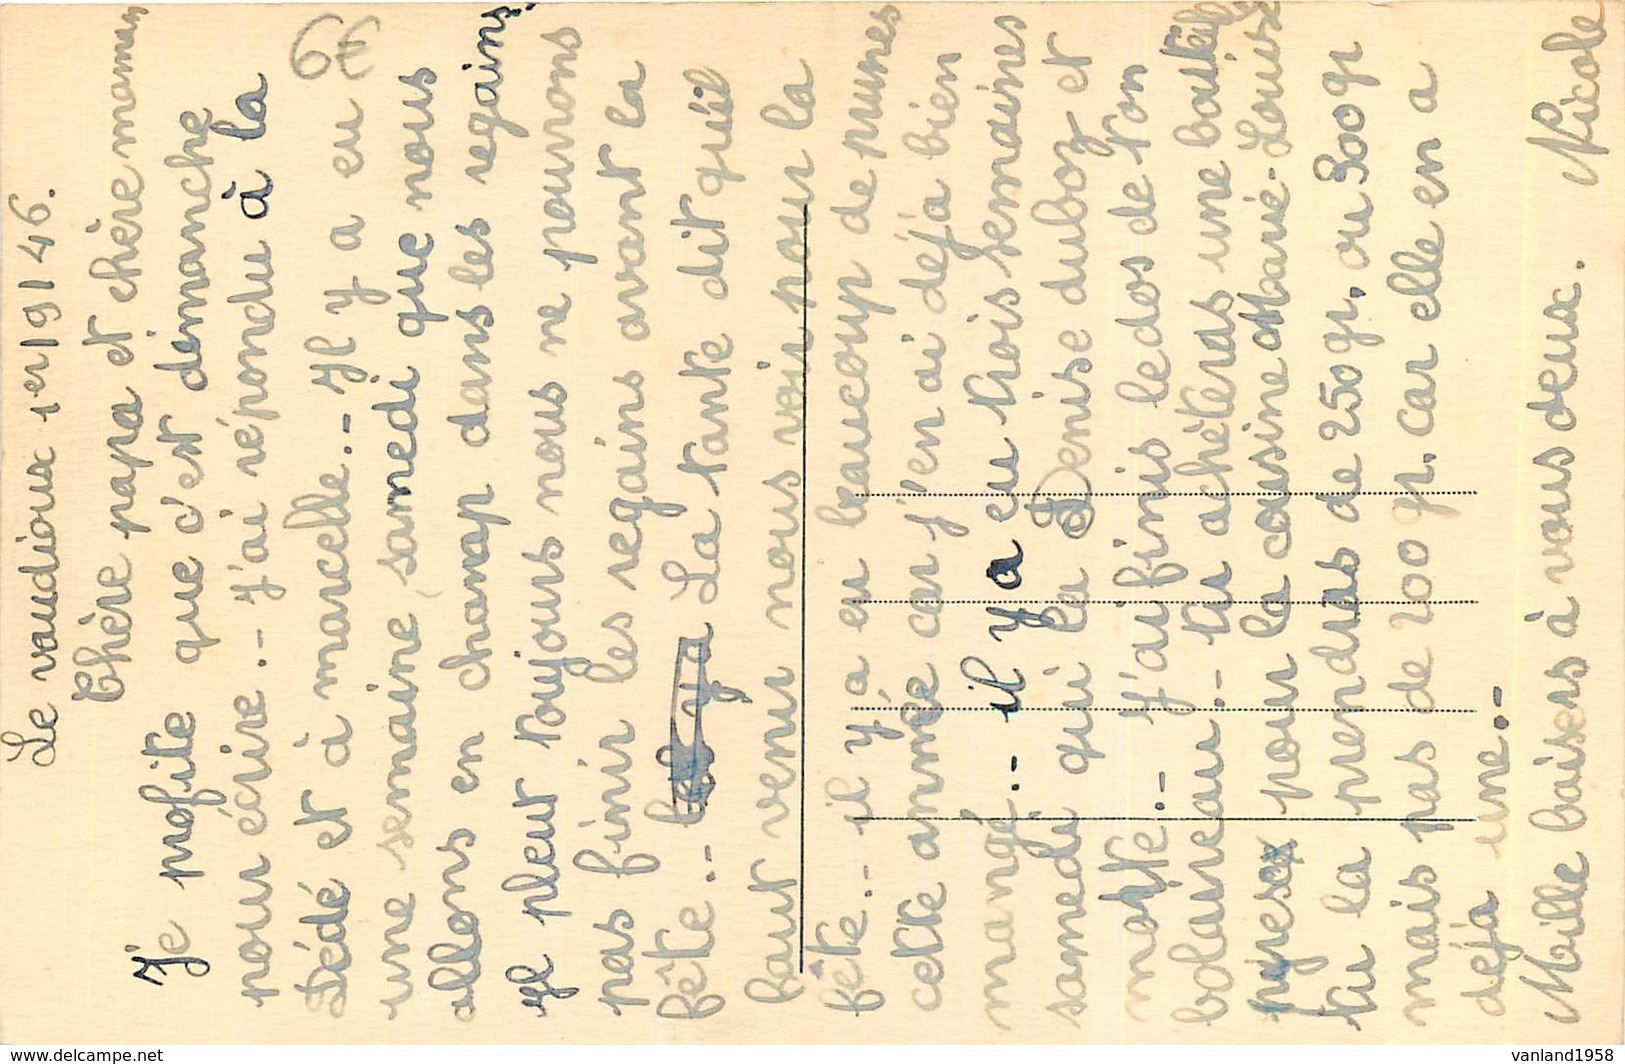 Le vaudioux 1er/9/46.
Chère papa et chère maman
Je profite que c'est démanche
pour écrire.- J'ai répondu à la
Dédé et à marcelle.- Il y a eu
une semaine samedi que nous
allons en champ dans les regains.
Il pleut toujours nous ne pouvrons
pas finir les regains avant la
fête.- La tante dit quil
faut venir nous voir pour la
fête.- il y'a eu beaucoup de prunes
cette année car j'en ai déja bien
mangé.- il y a eu trois semaines
samedi qui la Denise duboz et
morte.- J'ai finis le dos de ton
bolaireau.- tu achèteras une
pour la cousine Marie-Louise
tu la prendras de 250gr. ou 300gr
mais pas de 200gr. car elle en a
déja une.-
Mille baisers à vous deux. Nicole
6€
www.delcampe.net
vanland1958